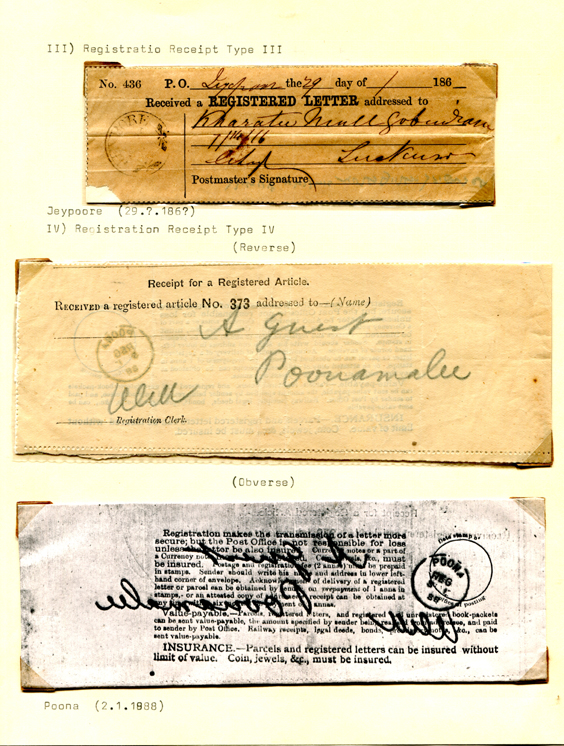 III) Registratio Receipt Type III
No. 436 P.O. Jeypoor the 29 day of / 186
Received a REGISTERED LETTER addressed to
Kharatu Mull Gobindram
City Lucknow
Postmaster's Signature
Jeypoore (29.?.186?)
IV) Registration Receipt Type IV
(Reverse)
Receipt for a Registered Article.
RECEIVED a registered article No. 373 addressed to—(Name)
A Guest
POONA
Poonamalee
Registration Clerk
(Obverse)
Registration makes the transmission of a letter more
secure; but the Post Office is not responsible for loss
unless the letter be also insured. Currency notes or a part of
a Currency note, &c., must
be insured. Postage and registration (2 annas) must be prepaid
in stamps. Sender should write his name and address in lower left-
hand corner of envelope. of delivery of a registered
letter or parcel can be obtained on prepayment of 1 anna in
stamps, or an attested copy of receipt can be obtained
annas.
Value-payable.—Parcels, registered letters, and registered or unregistered book-packets
can be sent value-payable, the amount specified by sender being and paid
to sender by Post Office. Railway receipts, legal deeds, bonds, &c., can be
sent value-payable.
INSURANCE.—Parcels and registered letters can be insured without
limit of value. Coin, jewels, &c., must be insured.
Date stamp of
POONA
of posting
Poona (2.1.1988)